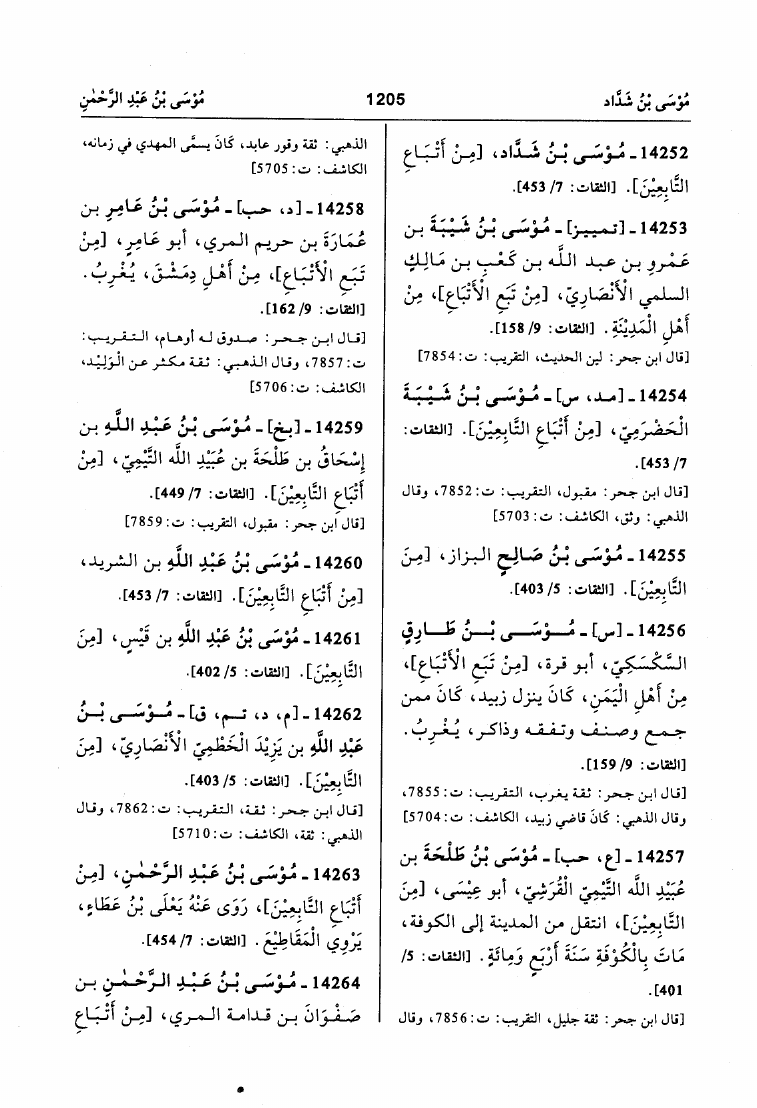 مُوْسَى بْنُ شَدَّاد
1205
مُوْسَى بْنُ عَبْدِ الرَّحْمٰنِ
14252 ـ مُوْسَى بْنُ شَدَّاد، [مِنْ أَتْبَاعِ
التَّابِعِيْنَ]. [الثقات: 7/ 453].
14253 ـ [تمييز] ـ مُوْسَى بْنُ شَيْبَةَ بن
عَمْرِو بن عبد اللَّه بن كَعْبِ بن مَالِك
السلمي الأَنْصَارِيّ، [مِنْ تَبَعِ الأَتْبَاعِ]، مِنْ
أَهْلِ الْمَدِيْنَةِ. [الثقات: 9/ 158].
[قال ابن حجر: لين الحديث، التقريب: ت: 7854]
14254 ـ [مد، س] ـ مُوْسَى بْنُ شَيْبَةَ
الْحَضْرَمِيّ، [مِنْ أَتْبَاعِ التَّابِعِيْنَ]. [الثقات:
7/ 453].
[قال ابن حجر: مقبول، التقريب: ت: 7852، وقال
الذهبي: وثق، الكاشف: ت: 5703]
14255 ـ مُوْسَى بْنُ صَالِحٍ البزاز، [مِنَ
التَّابِعِيْنَ]. [الثقات: 5/ 403].
14256 ـ [س] ـ مُوْسَى بْنُ طَارِقٍ
السَّكْسَكِيّ، أبو قرة، [مِنْ تَبَعِ الأَتْبَاعِ]،
مِنْ أَهْلِ الْيَمَنِ، كَانَ ينزل زبيد، كَانَ ممن
جمع وصنف وتفقه وذاكر، يُغْرِبُ.
[الثقات: 9/ 159].
[قال ابن حجر: ثقة يغرب، التقريب: ت: 7855،
وقال الذهبي: كَانَ قاضي زبيد، الكاشف: ت: 5704]
14257 ـ [ع، حب] ـ مُوْسَى بْنُ طَلْحَةَ بن
عُبَيْدِ الله التَّيْمِيّ الْقُرَشِيّ، أبو عِيْسَى، [مِنَ
التَّابِعِيْنَ]، انتقل من المدينة إلى الكوفة،
مَاتَ بِالْكُوْفَةِ سَنَةَ أَرْبَعٍ وَمِائَةٍ. [الثقات: 5/
401].
[قال ابن حجر: ثقة جليل، التقريب: ت: 7856، وقال
الذهبي: ثقة وقور عابد، كَانَ يسمَّى المهدي في زمانه،
الكاشف: ت: 5705]
14258 ـ [د، حب] ـ مُوْسَى بْنُ عَامِرِ بن
عُمَارَةَ بن حريم المري، أبو عَامِرٍ، [مِنْ
تَبَعِ الأَتْبَاعِ]، مِنْ أَهْلِ دِمَشْقَ، يُغْرِبُ.
[الثقات: 9/ 162].
[قال ابن حجر: صدوق له أوهام، التقريب:
ت: 7857، وقال الذهبي: ثقة مكثر عن الْوَلِيْد،
الكاشف: ت: 5706]
14259 ـ [بخ] ـ مُوْسَى بْنُ عَبْدِ اللَّهِ بن
إِسْحَاقُ بن طَلْحَةَ بن عُبَيْدِ الله التَّيْمِيّ، [مِنْ
أَتْبَاعِ التَّابِعِيْنَ]. [الثقات: 7/ 449].
[قال ابن حجر: مقبول، التقريب: ت: 7859]
14260 ـ مُوْسَى بْنُ عَبْدِ اللَّهِ بن الشريد،
[مِنْ أَتْبَاعِ التَّابِعِيْنَ]. [الثقات: 7/ 453].
14261 ـ مُوْسَى بْنُ عَبْدِ اللَّهِ بن قَيْسٍ، [مِنَ
التَّابِعِيْنَ]. [الثقات: 5/ 402].
14262 ـ [م، د، تم، ق] ـ مُوْسَى بْنُ
عَبْدِ اللَّهِ بن يَزِيْدَ الْخَطْمِيّ الأَنْصَارِيّ، [مِنَ
التَّابِعِيْنَ]. [الثقات: 5/ 403].
[قال ابن حجر: ثقة، التقريب: ت: 7862، وقال
الذهبي: ثقة، الكاشف: ت: 5710]
14263 ـ مُوْسَى بْنُ عَبْدِ الرَّحْمٰنِ، [مِنْ
أَتْبَاعِ التَّابِعِيْنَ]، رَوَى عَنْهُ يَعْلَى بْنُ عَطَاءٍ،
يَرْوِي الْمَقَاطِيْعَ. [الثقات: 7/ 454].
14264 ـ مُوْسَى بْنُ عَبْدِ الرَّحْمٰنِ بن
صَفْوَانَ بن قدامة المري، [مِنْ أَتْبَاعِ